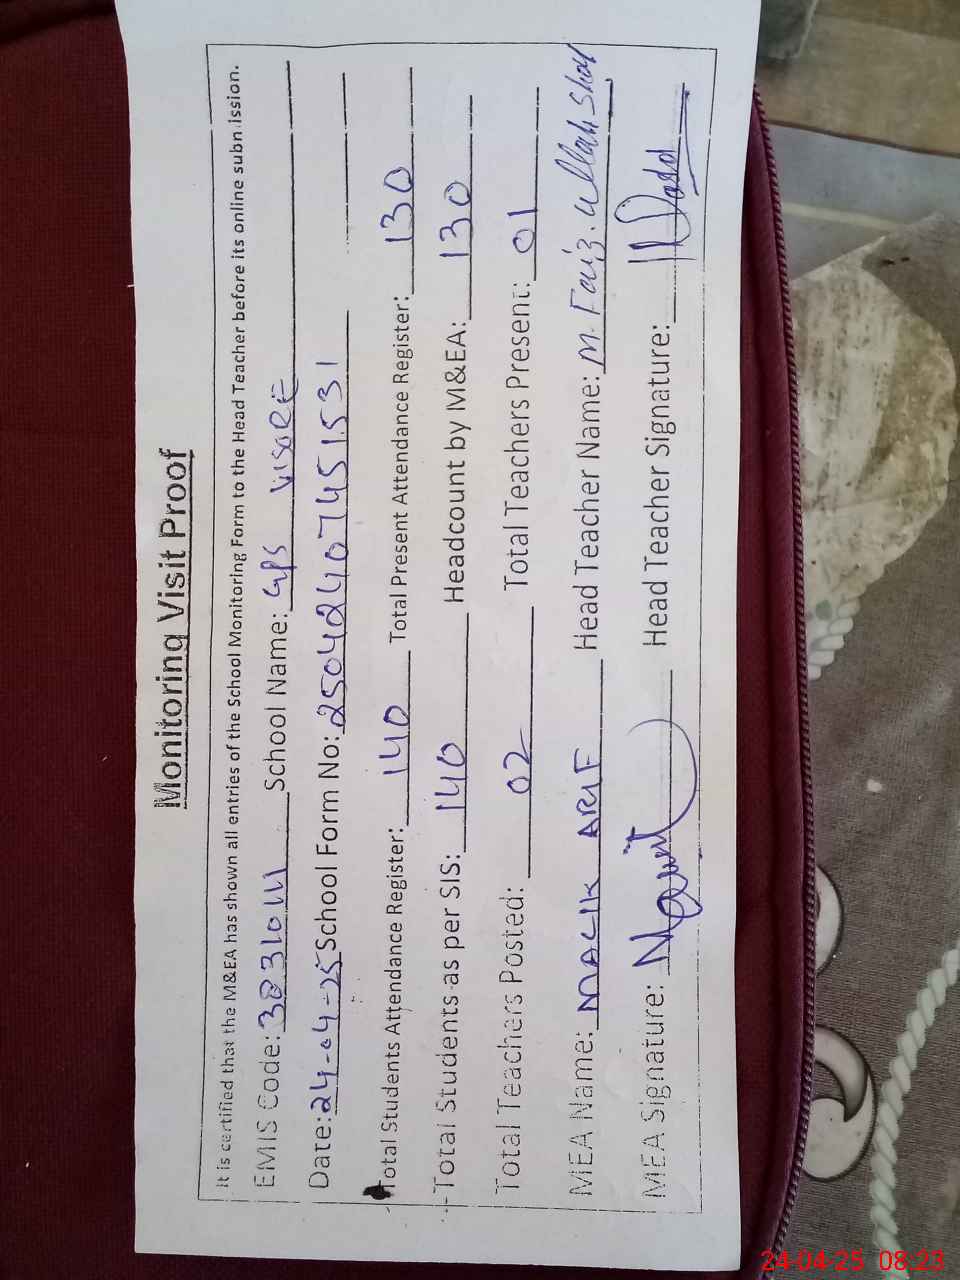 Monitoring Visit Proof
It is certified that the M&EA has shown all entries of the School Monitoring Form to the Head Teacher before its online submission.
EMIS Code: 38310111 School Name: GPS VISORE
Date: 24-04-25 School Form No: 25042407451531
Total Students Attendance Register: 140 Total Present Attendance Register: 130
Total Students as per SIS: 140 Headcount by M&EA: 130
Total Teachers Posted: 02 Total Teachers Present: 01
MEA Name: MALIK ARIF Head Teacher Name: M. Faiz. ullah Shah
MEA Signature: Head Teacher Signature:
24-04-25 08:23